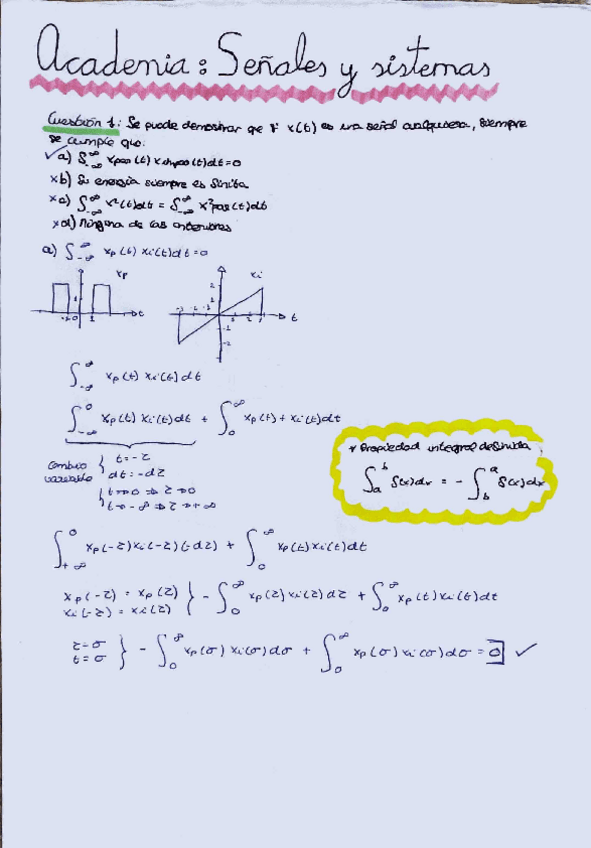 Academia: Señales y sistemas
Cuestión 1: Se puede demostrar que si x(t) es una señal cualquiera, siempre
se cumple que:
✓ a) ∫_{-∞}^{∞} xpar(t) ximpar(t)dt=0
x b) Su energía siempre es finita
x c) ∫_{-∞}^{∞} x²(t)dt = ∫_{-∞}^{∞} x²par(t)dt
x d) Ninguna de las anteriores
a) ∫_{-∞}^{∞} xp(t) xi(t)dt=0
xp
xi
1
t
2
1
t
-1
-2
∫_{-∞}^{∞} xp(t) xi(t)dt
∫_{-∞}^{0} xp(t) xi(t)dt + ∫_{0}^{∞} xp(t) + xi(t)dt
Cambio variable { t=-τ
dt=-dτ
t→0 ⇒ τ→0
t→-∞ ⇒ τ→+∞
* Propiedad integral definida
∫_{a}^{b} f(x)dx = - ∫_{b}^{a} f(x)dx
∫_{+∞}^{0} xp(-τ)xi(-τ)(-dτ) + ∫_{0}^{∞} xp(t)xi(t)dt
xp(-τ) = xp(τ)
xi(-τ) = xi(τ) } - ∫_{0}^{∞} xp(τ)xi(τ)dτ + ∫_{0}^{∞} xp(t)xi(t)dt
τ=σ
t=σ } - ∫_{0}^{∞} xp(σ) xi(σ)dσ + ∫_{0}^{∞} xp(σ) xi(σ)dσ = 0 ✓